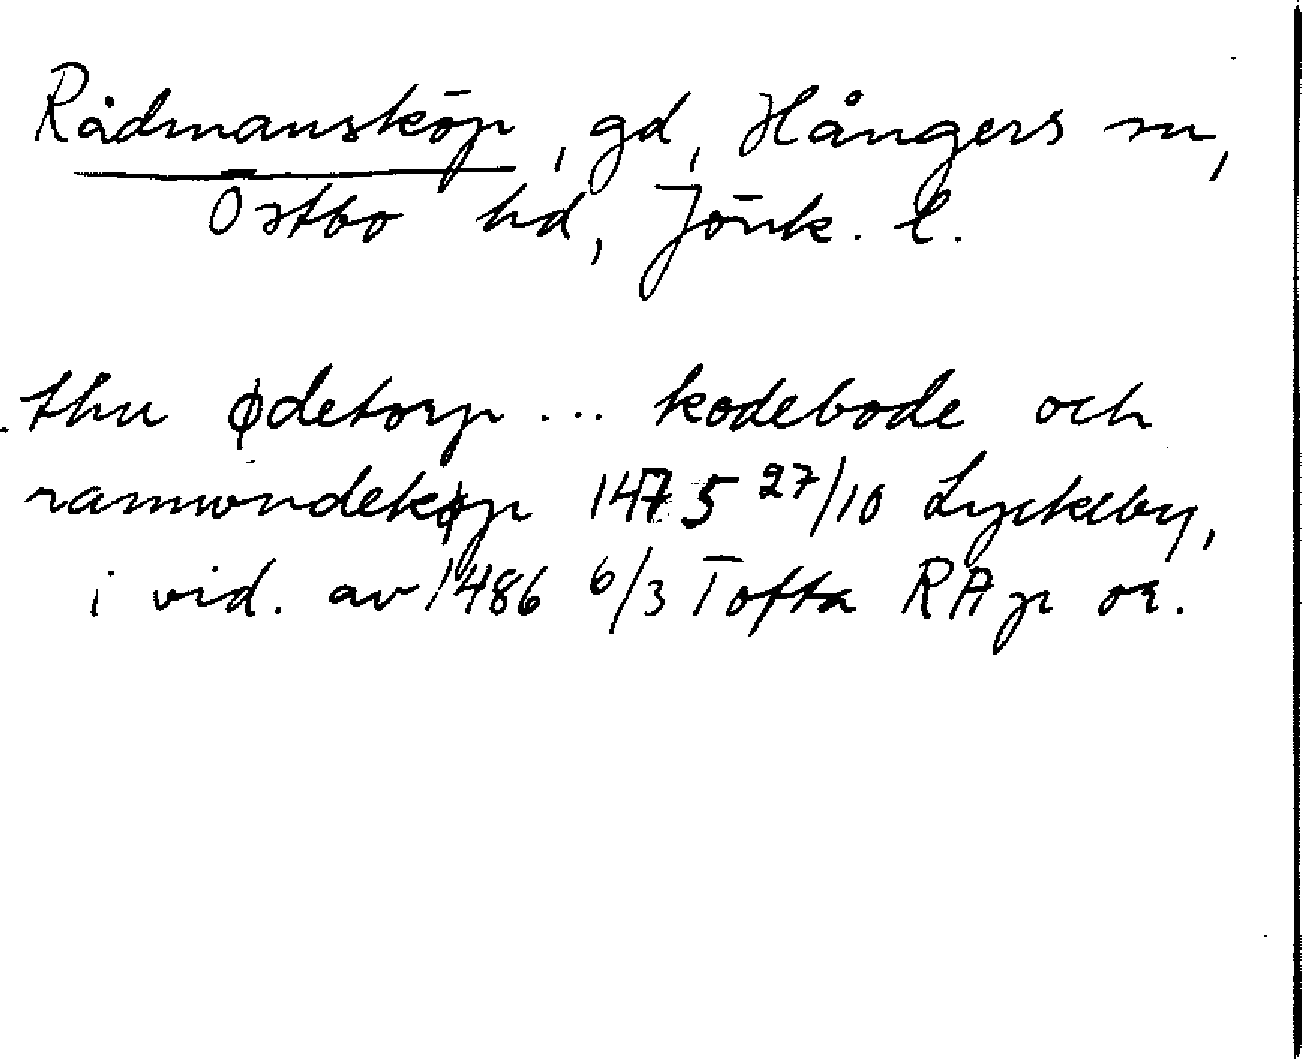 Rådmansköp, gd, Hångers sn,
Östbo hd, Jönk. l.
thu ødetorp ... kodebode och
ramundekøp 1475 27/10 Lyckeby,
i vid. av 1486 6/3 Tofta RAp or.